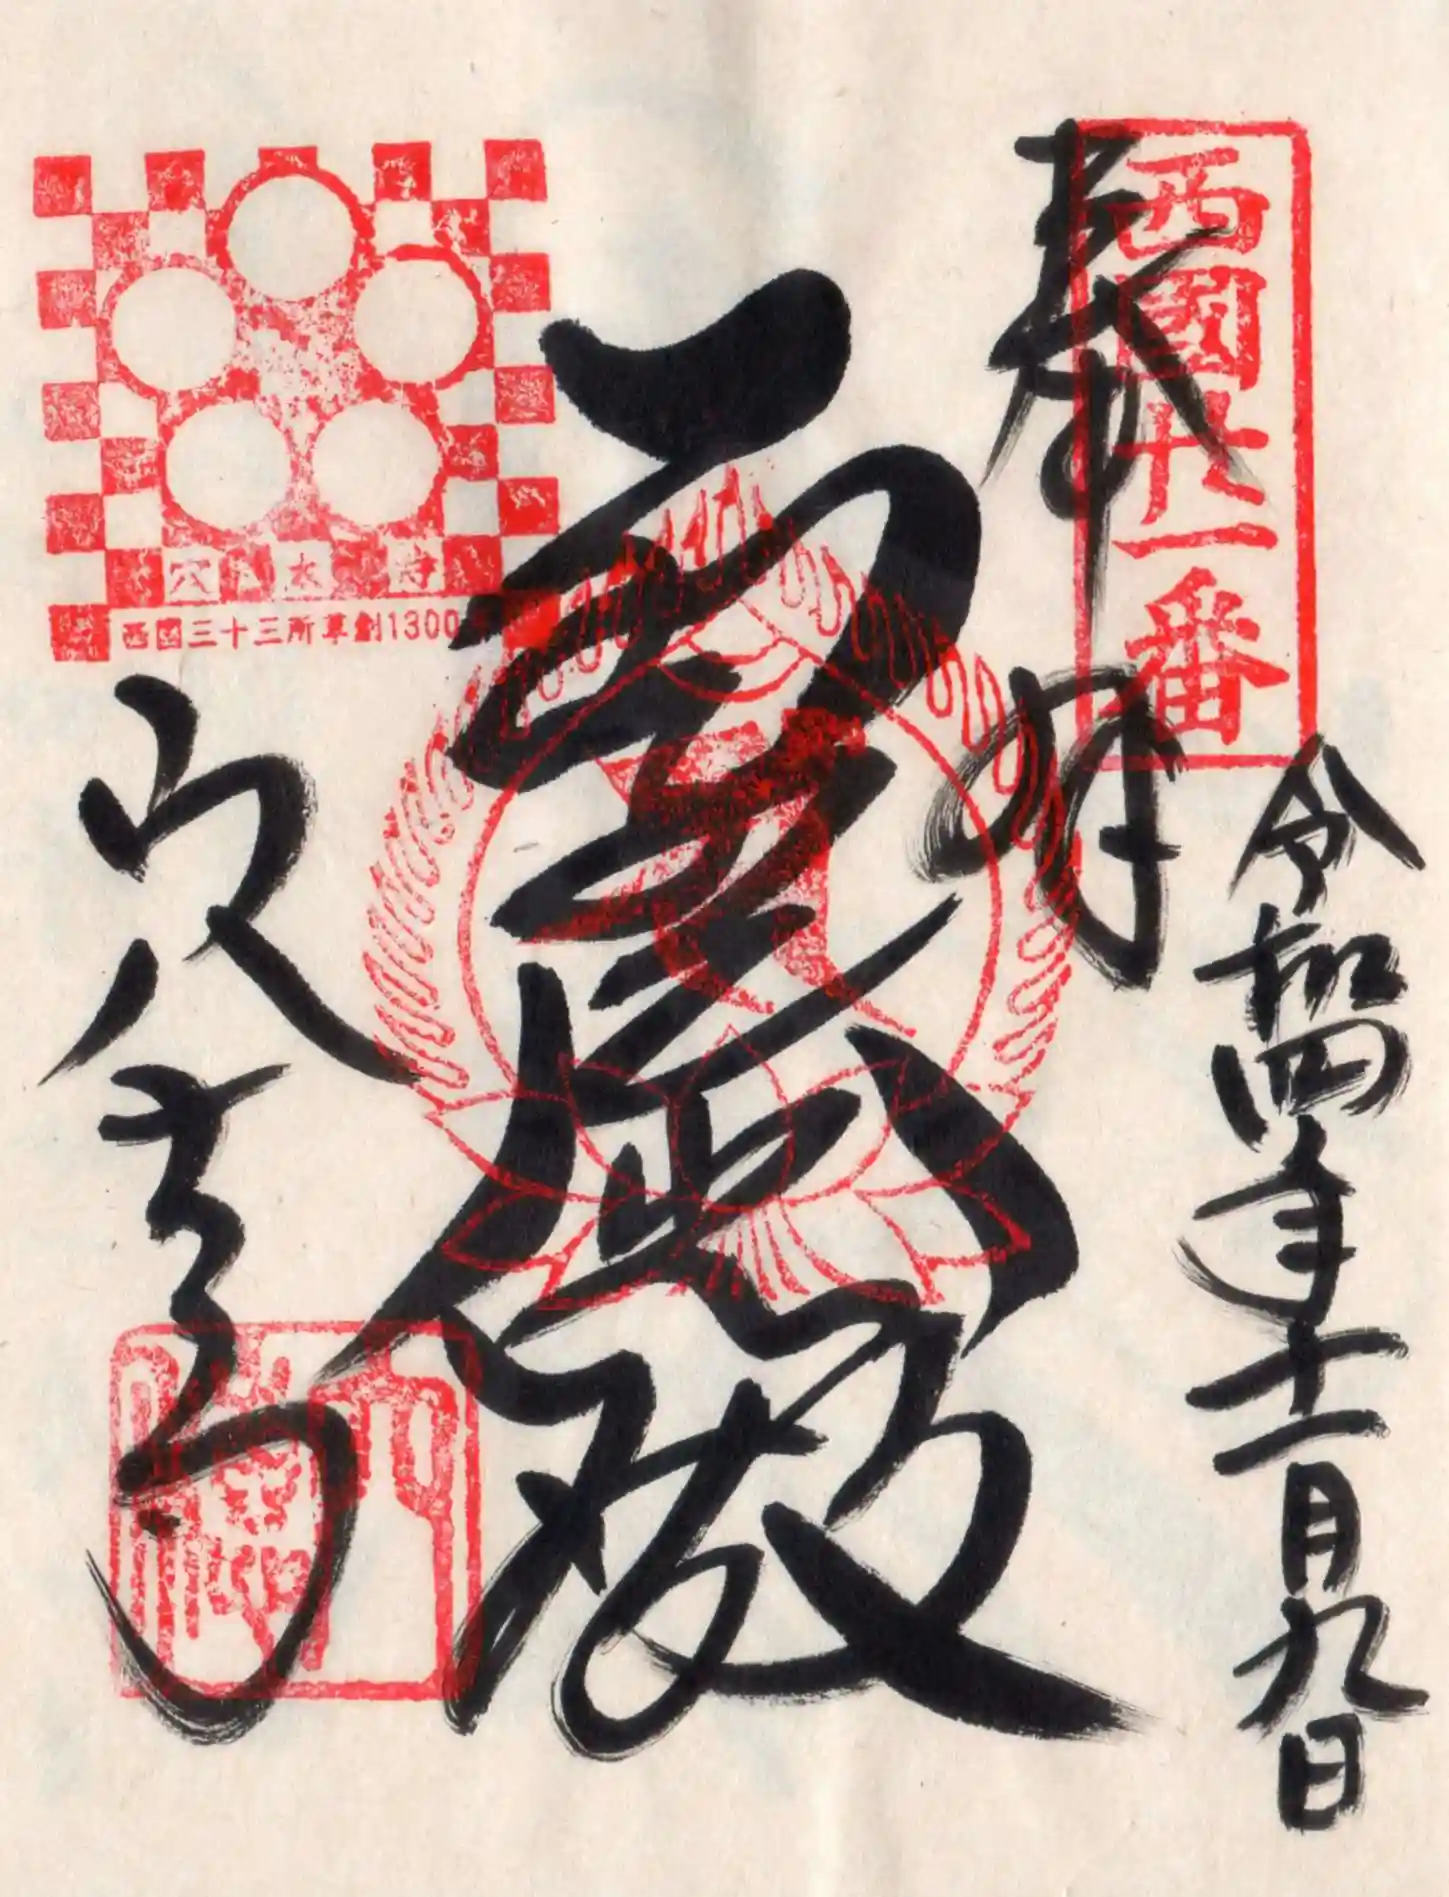 西國廿一番
奉拝
令和四年十一月九日
霊感殿
穴太寺
西国三十三所草創1300年
穴太寺